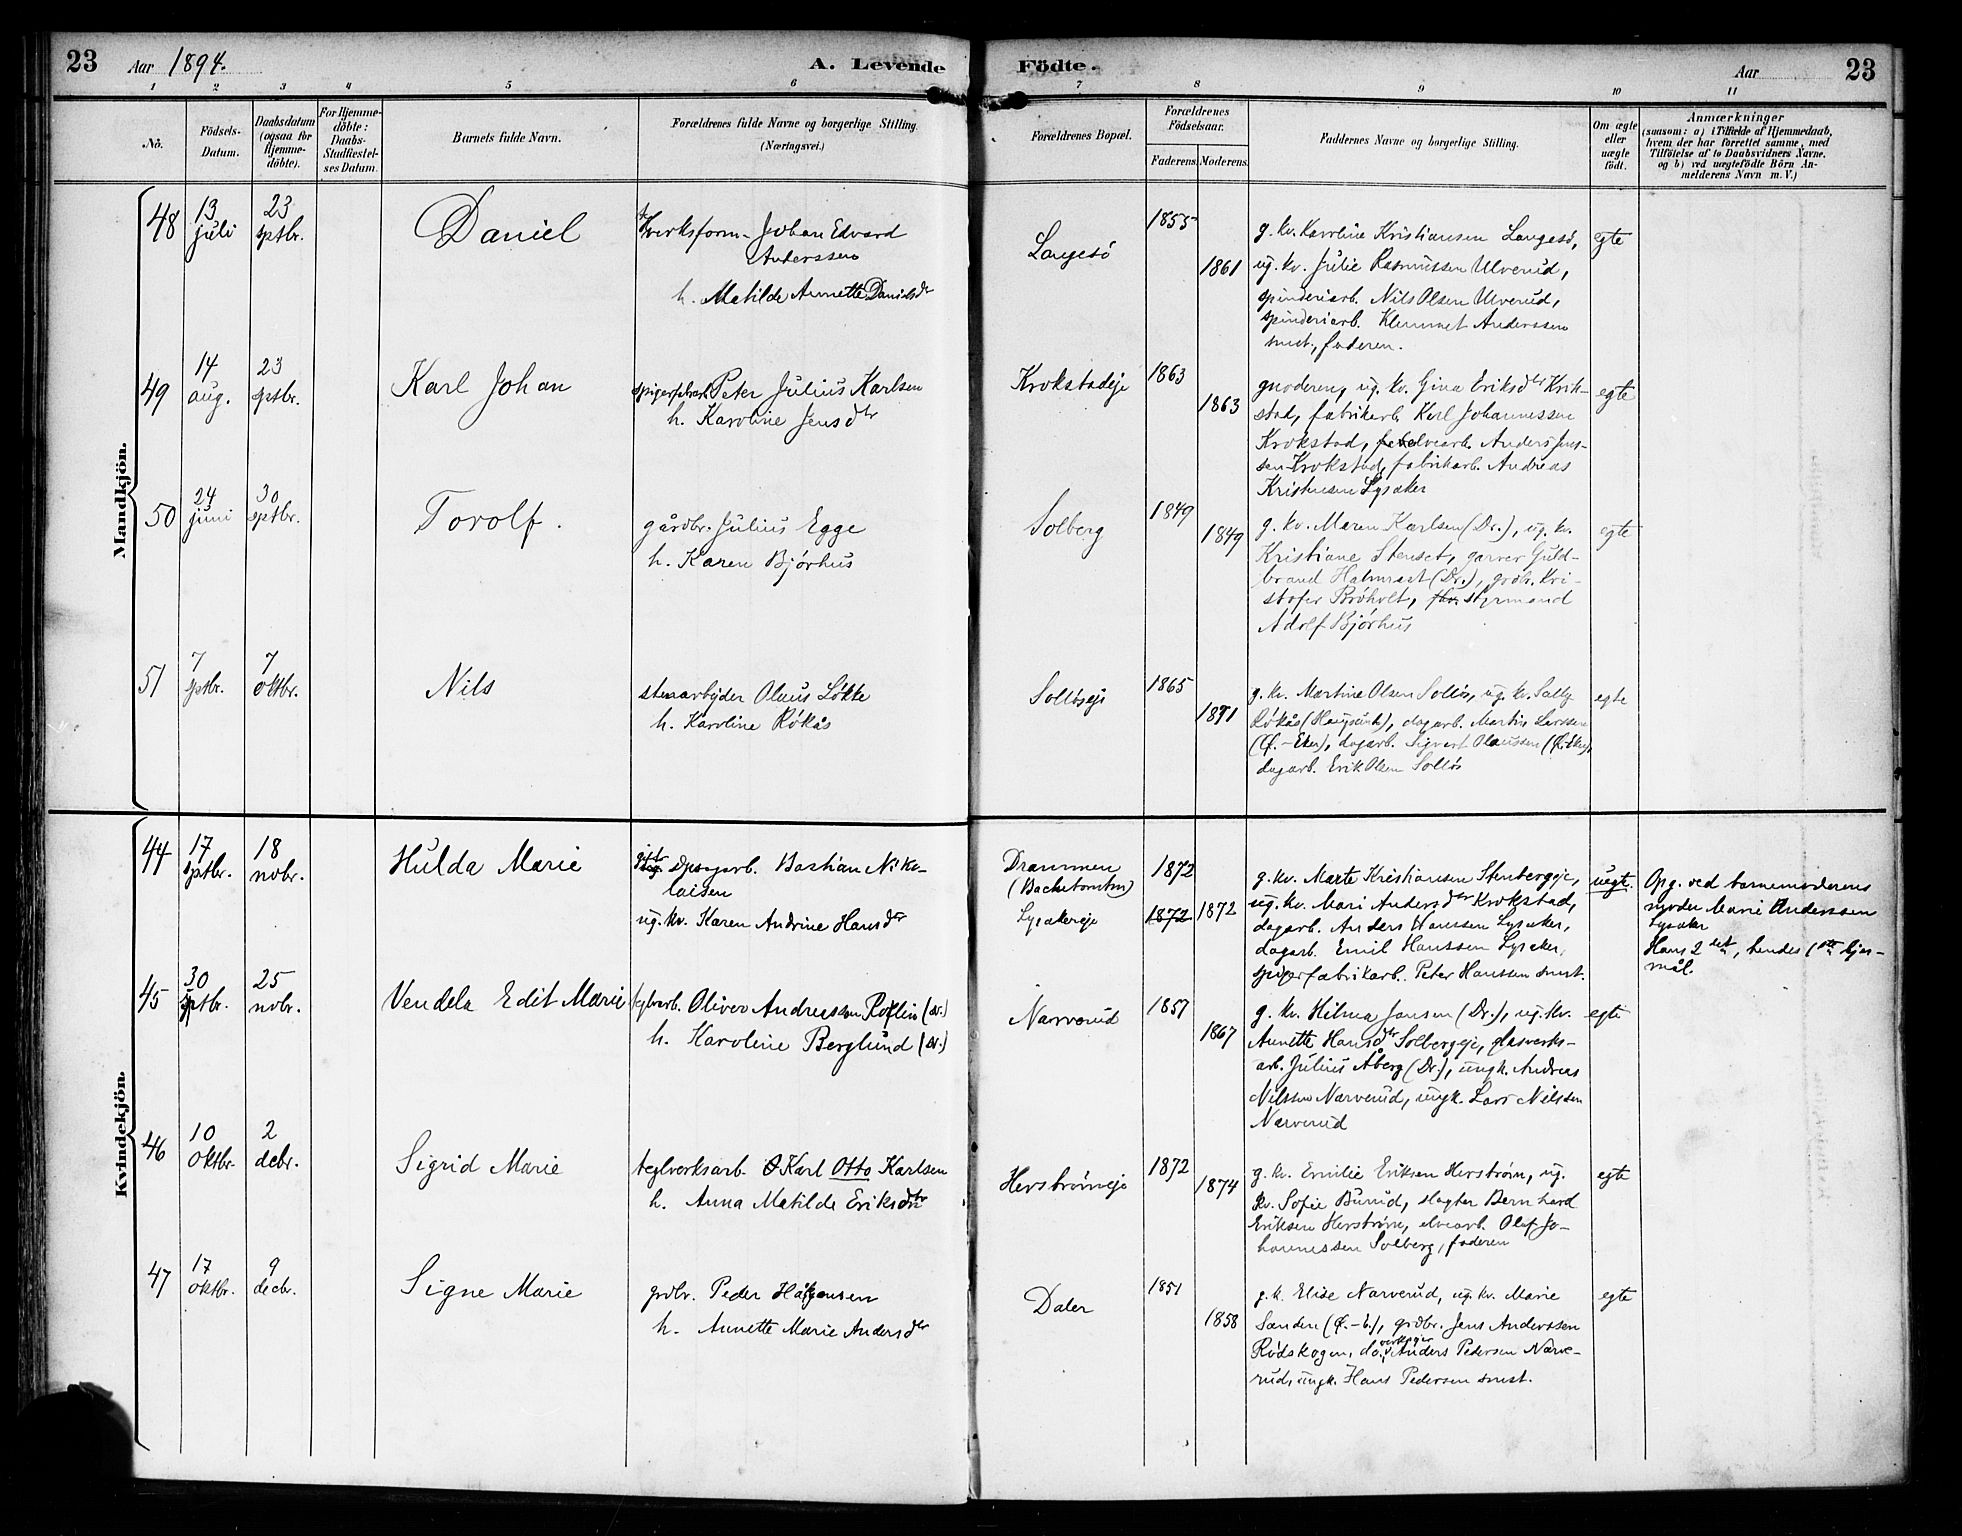 23 Aar 1894. A. Levende Födte. Aar 23
1 2 3 4 5 6 7 8 9 10 11
No. Födsels-Datum. Daabsdatum (ogsaa for Hjemme-döbte). For Hjemme-döbte: Daabs-Stadfæstel-ses Datum. Barnets fulde Navn. Forældrenes fulde Navne og borgerlige Stilling. (Næringsvei.) Forældrenes Bopæl. Forældrenes Födselsaar. Faderens. Moderens. Faddernes Navne og borgerlige Stilling. Om ægte eller uægte födt. Anmærkninger (saasom: a) i Tilfælde af Hjemmedaab, hvem der har forrettet samme, med Tilföielse af to Daabsvidners Navne, og b) ved uægtefödte Börn An-melderens Navn m. V.)
Mandkjön.
48 13 juli 23 sptbr. Daniel
Johan Edvard
Anderssen
h. Matilde Annette Danielsdtr
Langesö 1855 1861
g. kv. Karoline Kristiansen Langesö,
ug. kv. Julie Rasmussen Ulverud,
spinderiarb. Nils Olsen Ulverud,
spinderiarb. Klemmet Anderssen
smst., faderen.
egte
49 14 aug. 23 sptbr. Karl Johan
Peter Julius Karlsen
h. Karoline Jensdtr
Krokstadeje 1863 1863
ug. kv. Gina Eriksdtr Krok-
stad, fabrikarb. Karl Johannessen
Krokstad, elvearb. Anders Jens-
sen Krokstad, fabrikarb. Andreas
Kristensen Lysaker
egte
50 24 juni 30 sptbr. Torolf.
gårdbr. Julius Egge
h. Karen Bjørhus
Solberg 1849 1849
g. kv. Maren Karlsen (Dr.), ug. kv.
Kristiane Stenset, garver Guld-
brand (Dr.), grdbr. Kri-
stofer Brøholt, styrmand
Adolf Bjørhus
egte
51 7 sptbr. 7 oktbr. Nils
stenarbejder Olaus Løkke
h. Karoline Røkås
1865 1871
g. kv. Martine Olsen ug. kv. Sally
Røkås dagarb. Martin Larssen
(Ø.-Eker), dagarb. Sigvart Olaussen
dagarb. Erik Olsen
egte
Kvindekjön.
44 17 sptbr. 18 nobr. Hulda Marie
gift Bastian Niko-
laisen
ug. kv. Karen Andrine Hansdtr
Drammen
Lysakereje
1872 1872 1872
g. kv. Marte Kristiansen Stenbergeje,
ug. kv. Mari Andersdtr Krokstad,
dagarb. Anders Hanssen Lysaker,
dagarb. Emil Hanssen Lysaker,
spigerfabrikarb. Peter Hanssen smst.
uegte.
Opg. ved barnemoderens
moder Marie Anderssen
Lysaker
Hans 2det, hendes 1ste lejer-
mål.
45 30 sptbr. 25 nobr. Vendela Edit Marie
teglvarb. Oliver Andreassen (sv.)
h. Karoline Berglund (sv.)
Narverud 1857 1867
g. kv. Hilma Jansen (Dr.), ug. kv.
Annette Hansdtr Solbergeje, glasverks-
arb. Julius Åberg (Dr.), ungk. Andreas
Nilssen Narverud, ungk. Lars Nilssen
Narverud
egte
46 10 oktbr. 2 debr. Sigrid Marie
teglverksarb. Karl Otto Karlsen
h. Anna Matilde Eriksdtr
Herstrømeje 1872 1874
g. kv. Emilie Eriksen Herstrøm, ug.
kv. Sofie Burud, slagter Bernhard
Eriksen Herstrøm, elvearb. Olaf Jo-
hannessen Solberg, faderen
egte
47 17 oktbr. 9 decbr. Signe Marie
grdbr. Peder Hågensen
h. Annette Marie Andersdtr
Daler 1851 1858
g. k. Elise Narverud, ug. kv. Marie
Sanden (Ø.-E.), grdbr. Jens Anderssen
Rødskogen, Anders Pedersen Narve-
rud, ungk. Hans Pedersen smst.
egte